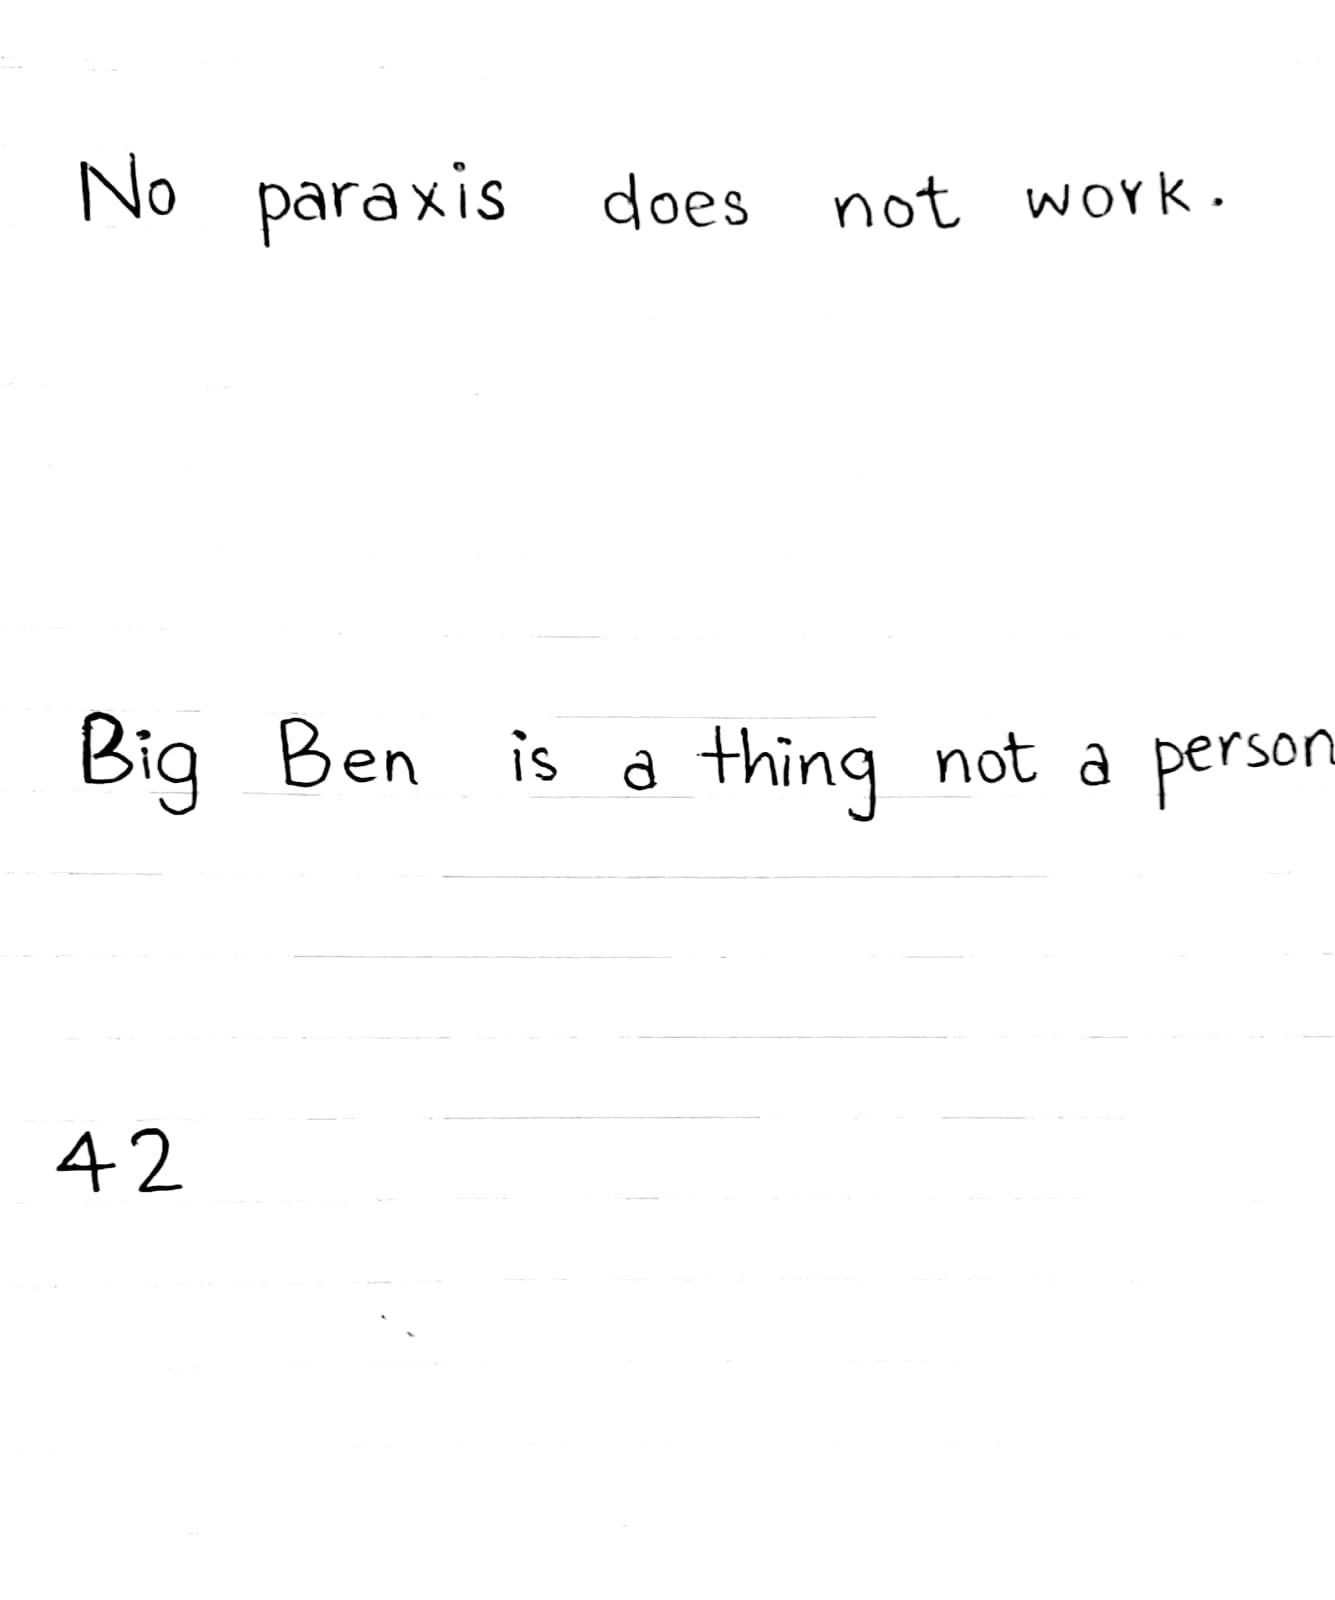 No paraxis does not work.
Big Ben is a thing not a person
42